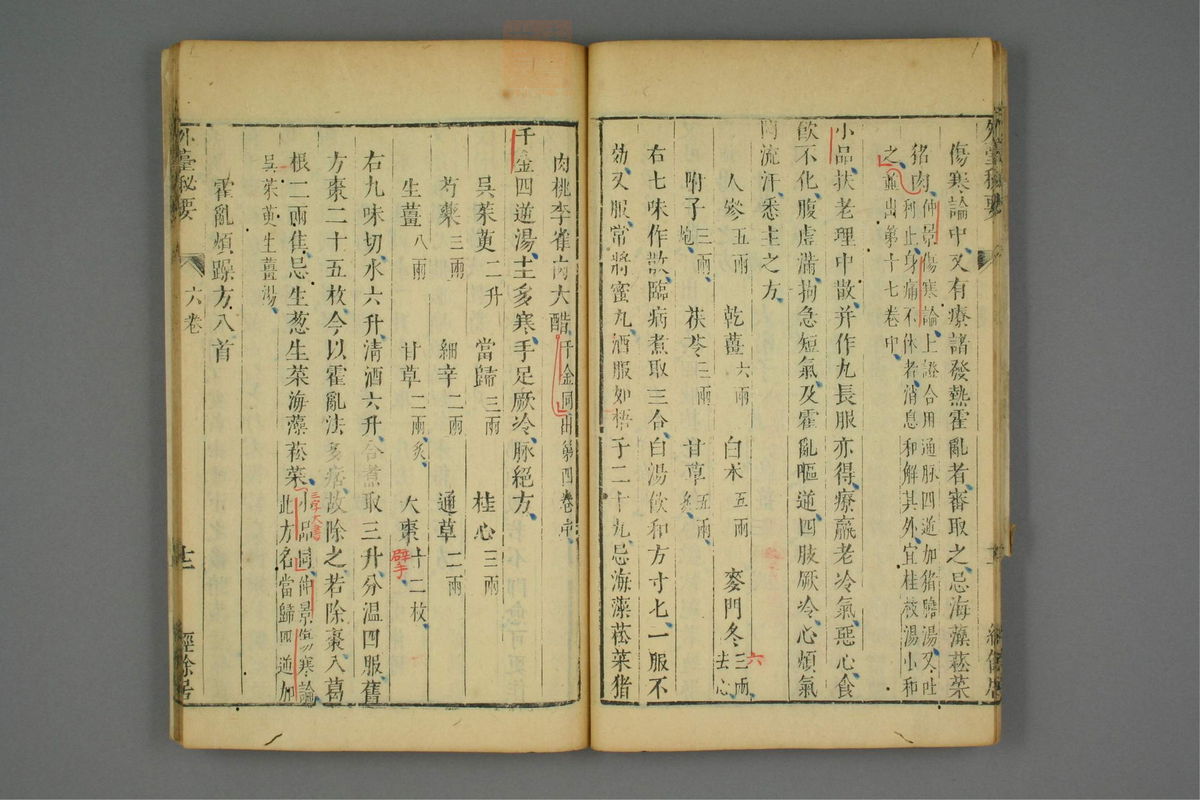 傷寒論中又有療諸發熱霍亂者審取之忌海藻菘菜
猪肉仲景傷寒論上證合用通脉四逆加猪膽湯又吐
利止身痛不休者消息和解其外宜桂枝湯小和
之並出第十七卷中
小品扶老理中散并作丸長服亦得療羸老冷氣惡心食
飲不化腹虛滿拘急短氣及霍亂嘔逆四肢厥冷心煩氣
悶流汗悉主之方
人參五兩 乾薑六兩 白朮五兩 麥門冬六三兩去心
附子三兩炮 茯苓三兩 甘草五兩炙
右七味作散臨病煮取三合白湯飲和方寸匕一服不
効又服常將蜜丸酒服如梧子二十丸忌海藻菘菜猪
肉桃李雀肉大醋千金同出第四卷中
千金四逆湯主多寒手足厥冷脉絕方
吳茱萸二升 當歸三兩 桂心三兩
芍藥三兩 細辛二兩 通草二兩
生薑八兩 甘草二兩炙 大棗十二枚擘
右九味切水六升清酒六升合煮取三升分温四服舊
方棗二十五枚今以霍亂法多痞故除之若除棗入葛
根二兩佳忌生葱生菜海藻菘菜小品同仲景傷寒論
此方名當歸四逆加
吳茱萸生薑湯
霍亂煩躁方八首
外臺秘要 六卷 十二 經餘居